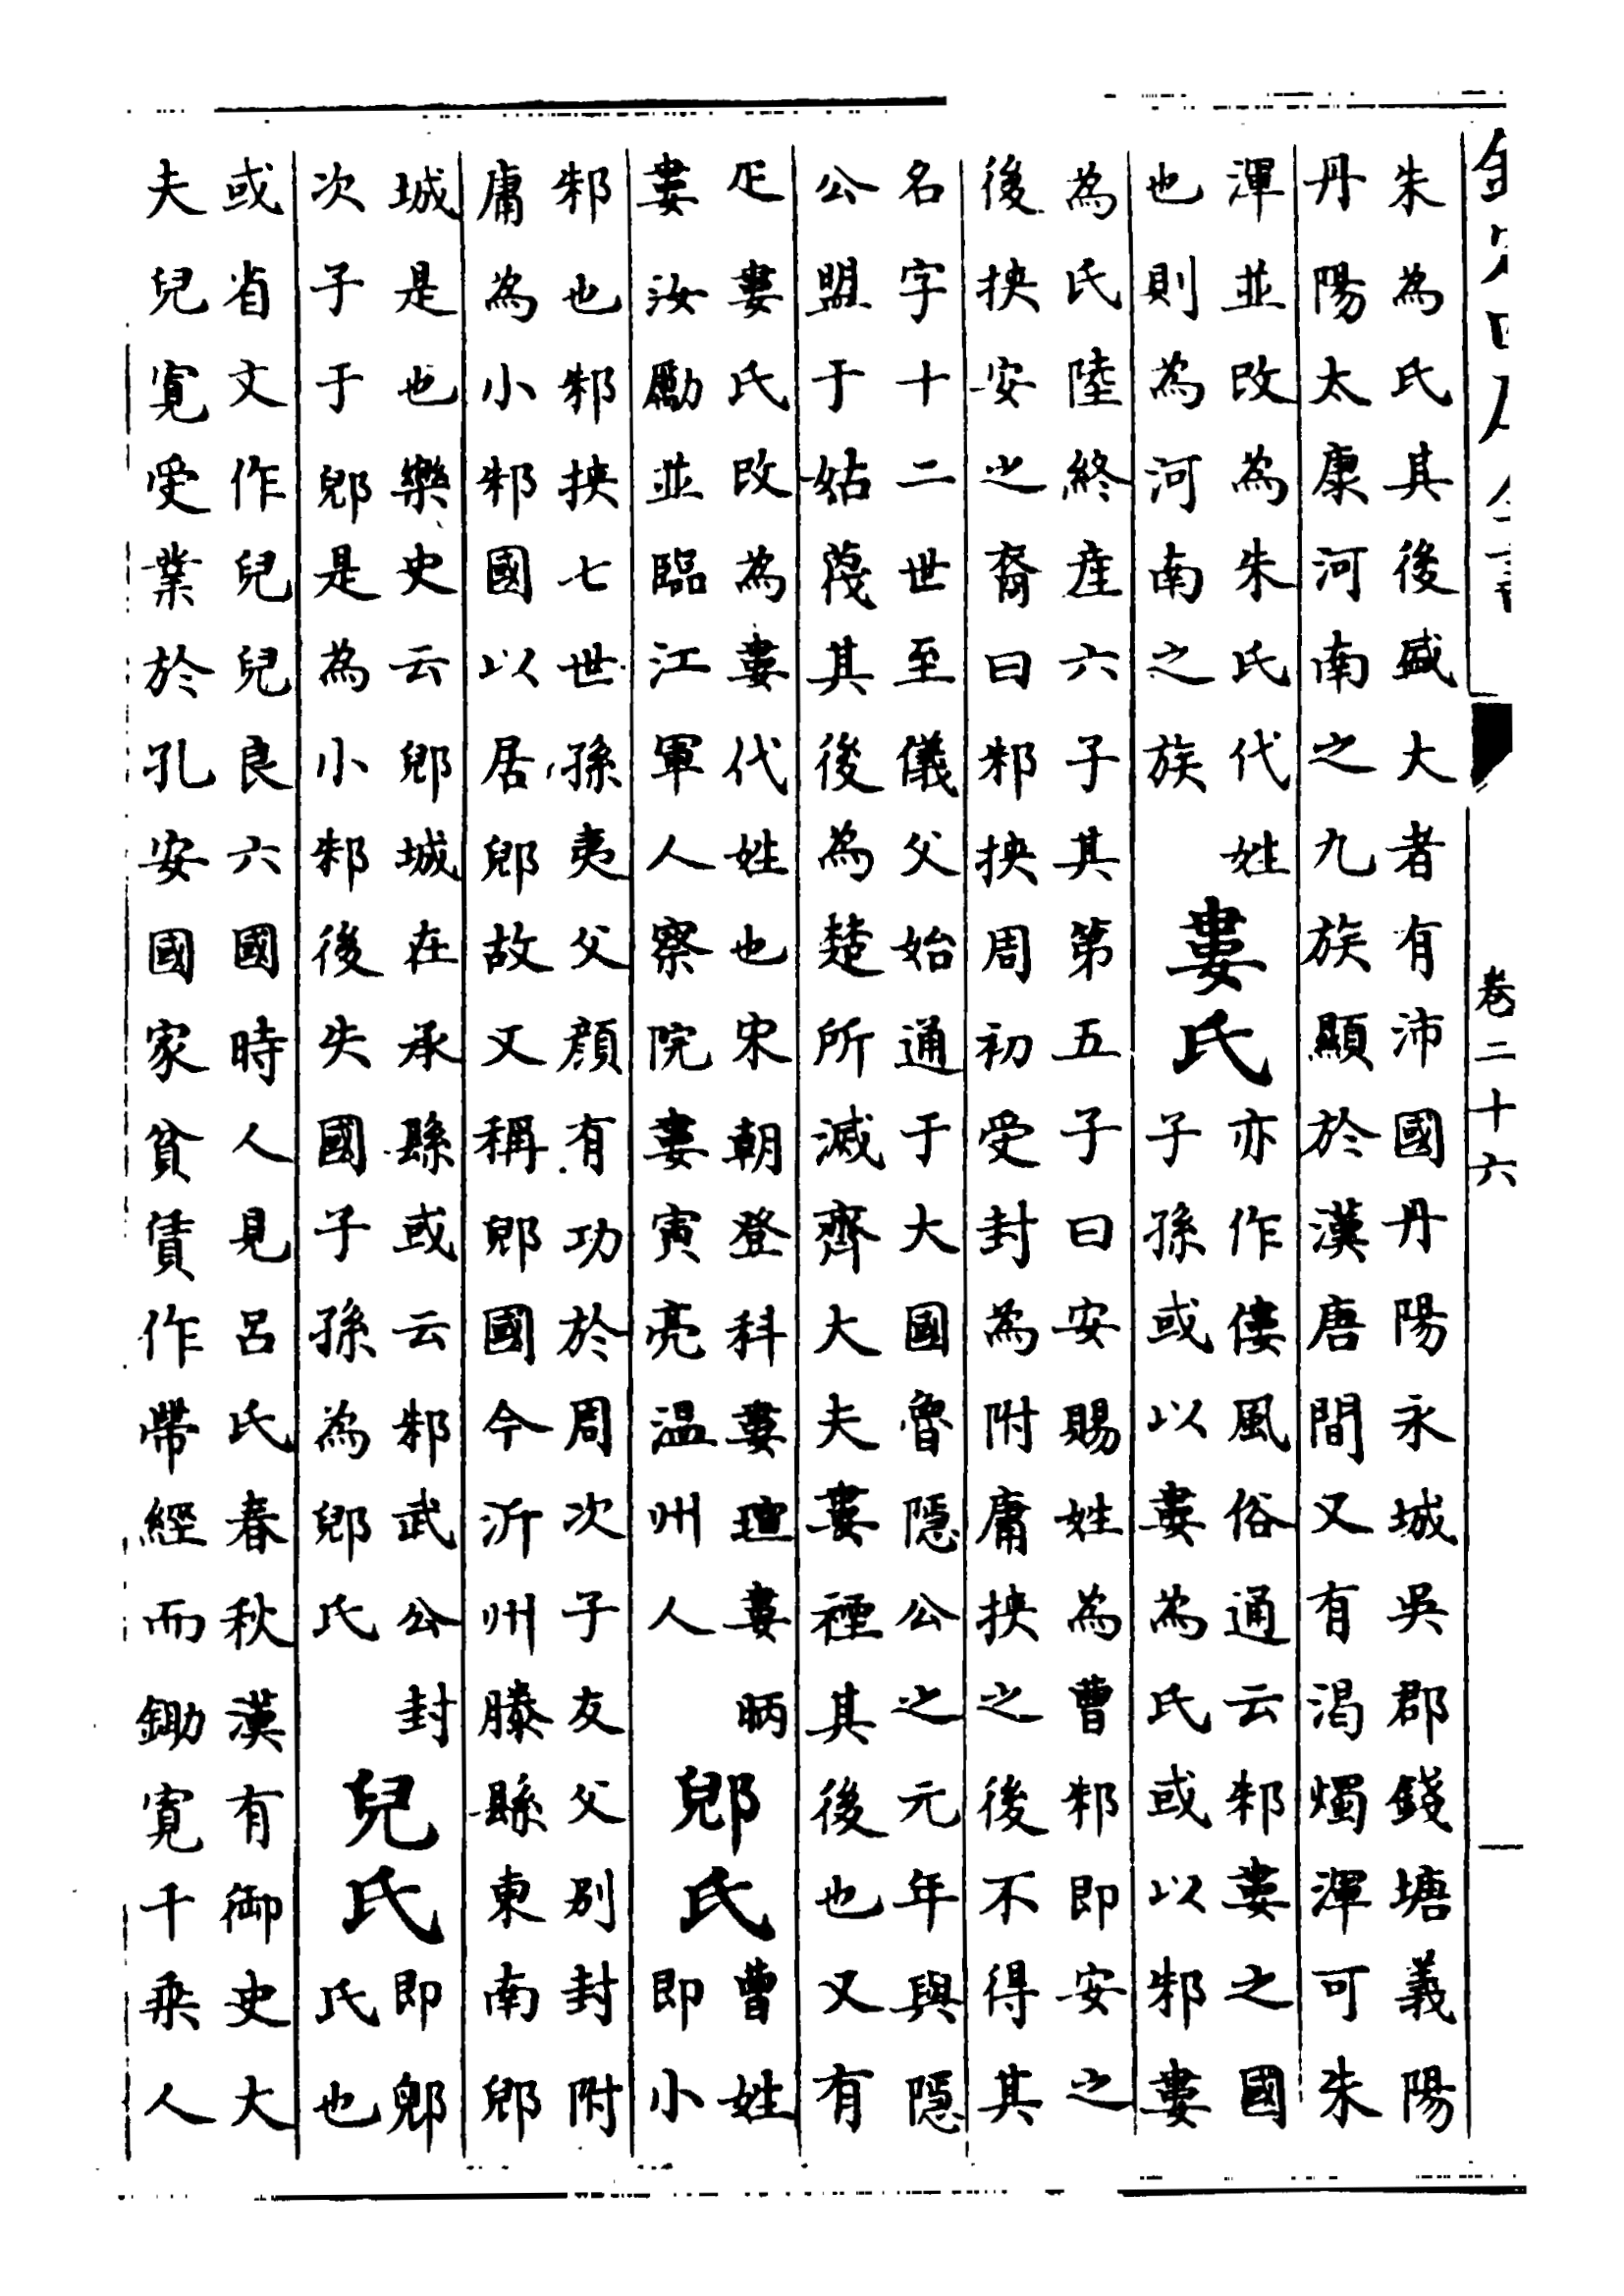 欽定四庫全書
卷二十六
一
朱為氏其後盛大者有沛國丹陽永城吳郡錢塘義陽
丹陽太康河南之九族顯於漢唐間又有渴燭渾可朱
渾並改為朱氏代姓
也則為河南之族
婁氏
亦作僂風俗通云邾婁之國
子孫或以婁為氏或以邾婁
為氏陸終產六子其第五子曰安賜姓為曹邾即安之
後挾安之裔曰邾挾周初受封為附庸挾之後不得其
名字十二世至儀父始通于大國魯隱公之元年與隱
公盟于姑蔑其後為楚所滅齊大夫婁禋其後也又有
疋婁氏改為婁代姓也宋朝登科婁瑄婁昞
婁汝勵並臨江軍人察院婁寅亮温州人
郳氏
曹姓
即小
邾也邾挾七世孫夷父顏有功於周次子友父別封附
庸為小邾國以居郳故又稱郳國今沂州滕縣東南郳
城是也樂史云郳城在承縣或云邾武公封
次子于郳是為小邾後失國子孫為郳氏
兒氏
即郳
氏也
或省文作兒兒良六國時人見呂氏春秋漢有御史大
夫兒寬受業於孔安國家貧賃作帶經而鋤寬千乘人